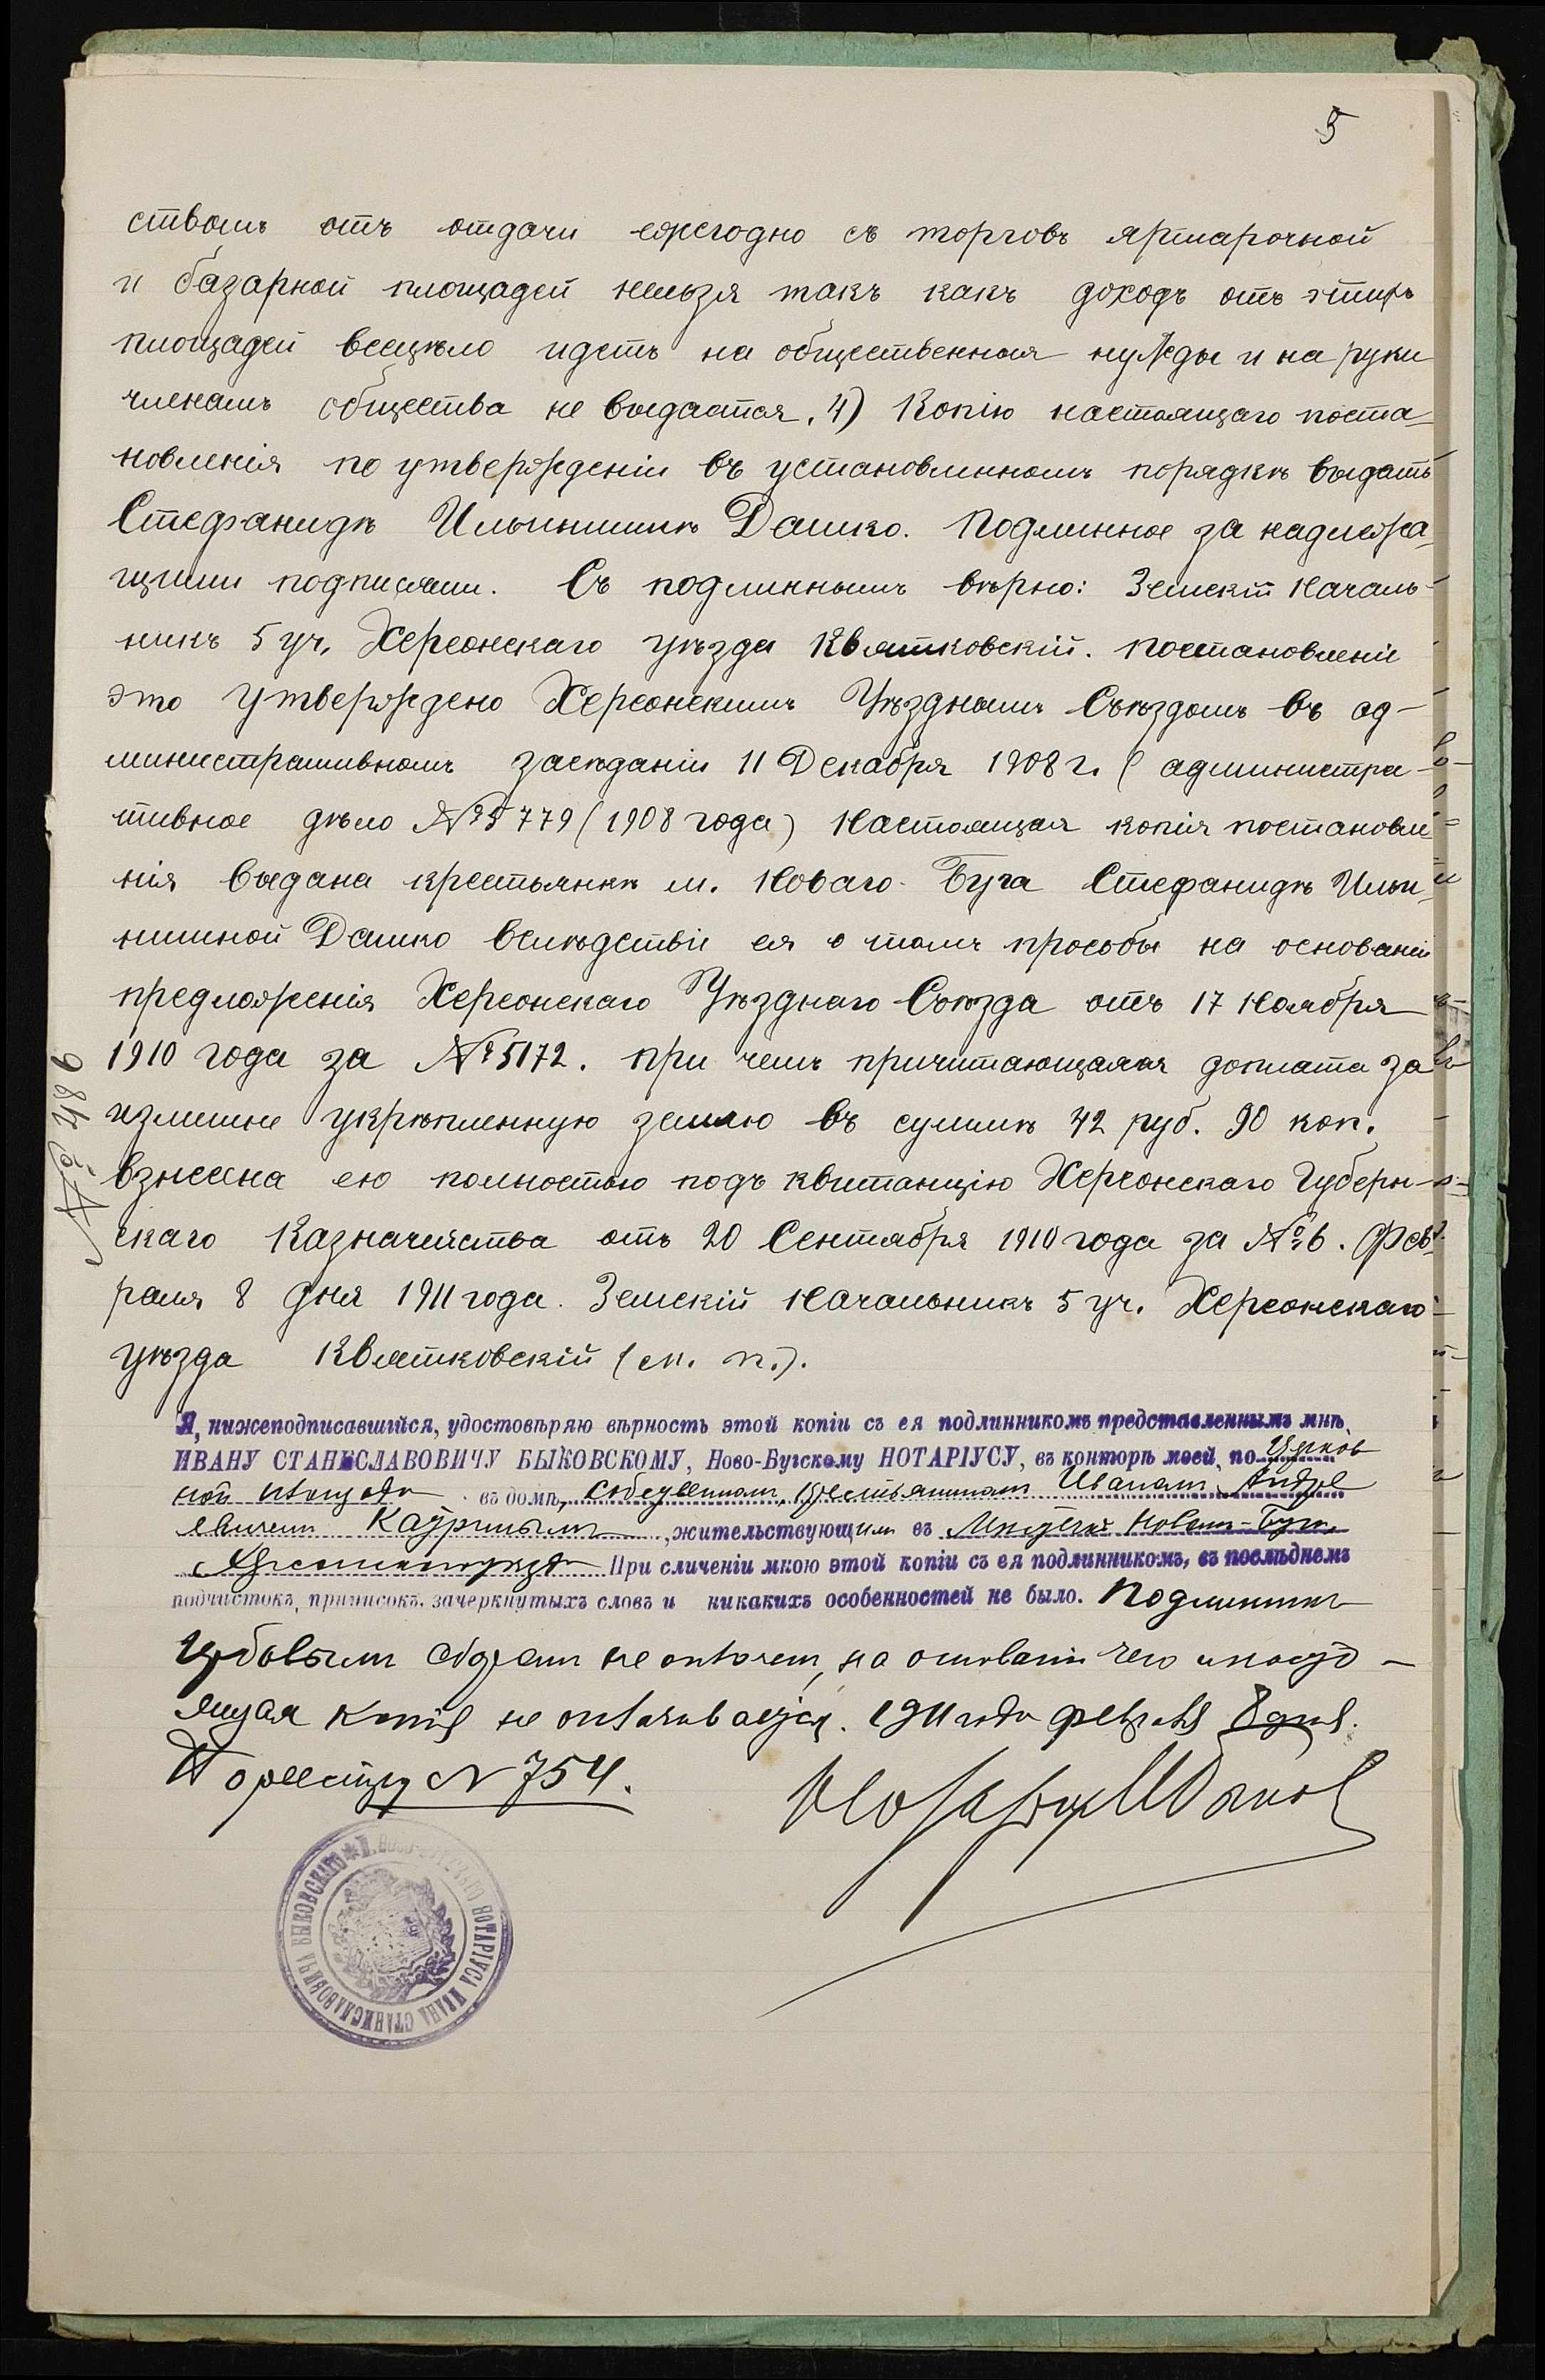 5
ствомъ отъ отдачи ежегодно съ торговъ ярмарочной
и базарной площадей нельзя такъ какъ доходъ отъ этихъ
площадей всецѣло идетъ на общественныя нужды и на руки
членамъ общества не выдается. 4) Копію настоящаго поста-
новленія по утвержденіи въ установленномъ порядкѣ выдать
Стефанидѣ Ильинишнѣ Дашко. Подлинное за надлежа-
щими подписями. Съ подлиннымъ вѣрно: Земскій Началь-
никъ 5 уч. Херсонскаго уѣзда Квятковскій. Постановленіе
это утверждено Херсонскимъ Уѣзднымъ Съѣздомъ въ ад-
министративномъ засѣданіи 11 Декабря 1908 г. (администра-
тивное дѣло № 5779 (1908 года) Настоящая копія постановле-
нія выдана крестьянкѣ м. Новаго Буга Стефанидѣ Ильи-
нишной Дашко вслѣдствіе ея о томъ просьбы на основаніи
предложенія Херсонскаго Уѣзднаго Съѣзда отъ 17 Ноября
1910 года за № 5172. при чемъ причитающаяся доплата за
излишне укрѣпленную землю въ суммѣ 42 руб. 90 коп.
взнесена ею полностью подъ квитанцію Херсонскаго Губерн-
скаго Казначейства отъ 20 Сентября 1910 года за № 6. Фев-
раля 8 дня 1911 года. Земскій Начальникъ 5 уч. Херсонскаго
уѣзда Квятковскій (м. п.).
№ 486
Я, нижеподписавшійся, удостовѣряю вѣрность этой копіи съ ея подлинникомъ представленнымъ мнѣ,
ИВАНУ СТАНИСЛАВОВИЧУ БЫКОВСКОМУ, Ново-Бугскому НОТАРІУСУ, въ конторѣ моей, по Церков
ной площади въ домѣ, собственномъ, крестьяниномъ Иваномъ Андре
евичемъ, жительствующимъ въ мѣстечкѣ Новомъ-Бугѣ,
Херсонскаго уѣзда При сличеніи мною этой копіи съ ея подлинникомъ, въ послѣднемъ
подчистокъ, приписокъ, зачеркнутыхъ словъ и никакихъ особенностей не было. Подлинникъ
гербовымъ сборомъ не оплаченъ, на основаніи чего и насто-
ящая копія не оплачивается. 1911 года февраля 8 дня.
По реестру N 754.
Нотаріусъ
НОТАРІУСА ИВАНА СТАНИСЛАВОВИЧА БЫКОВСКАГО